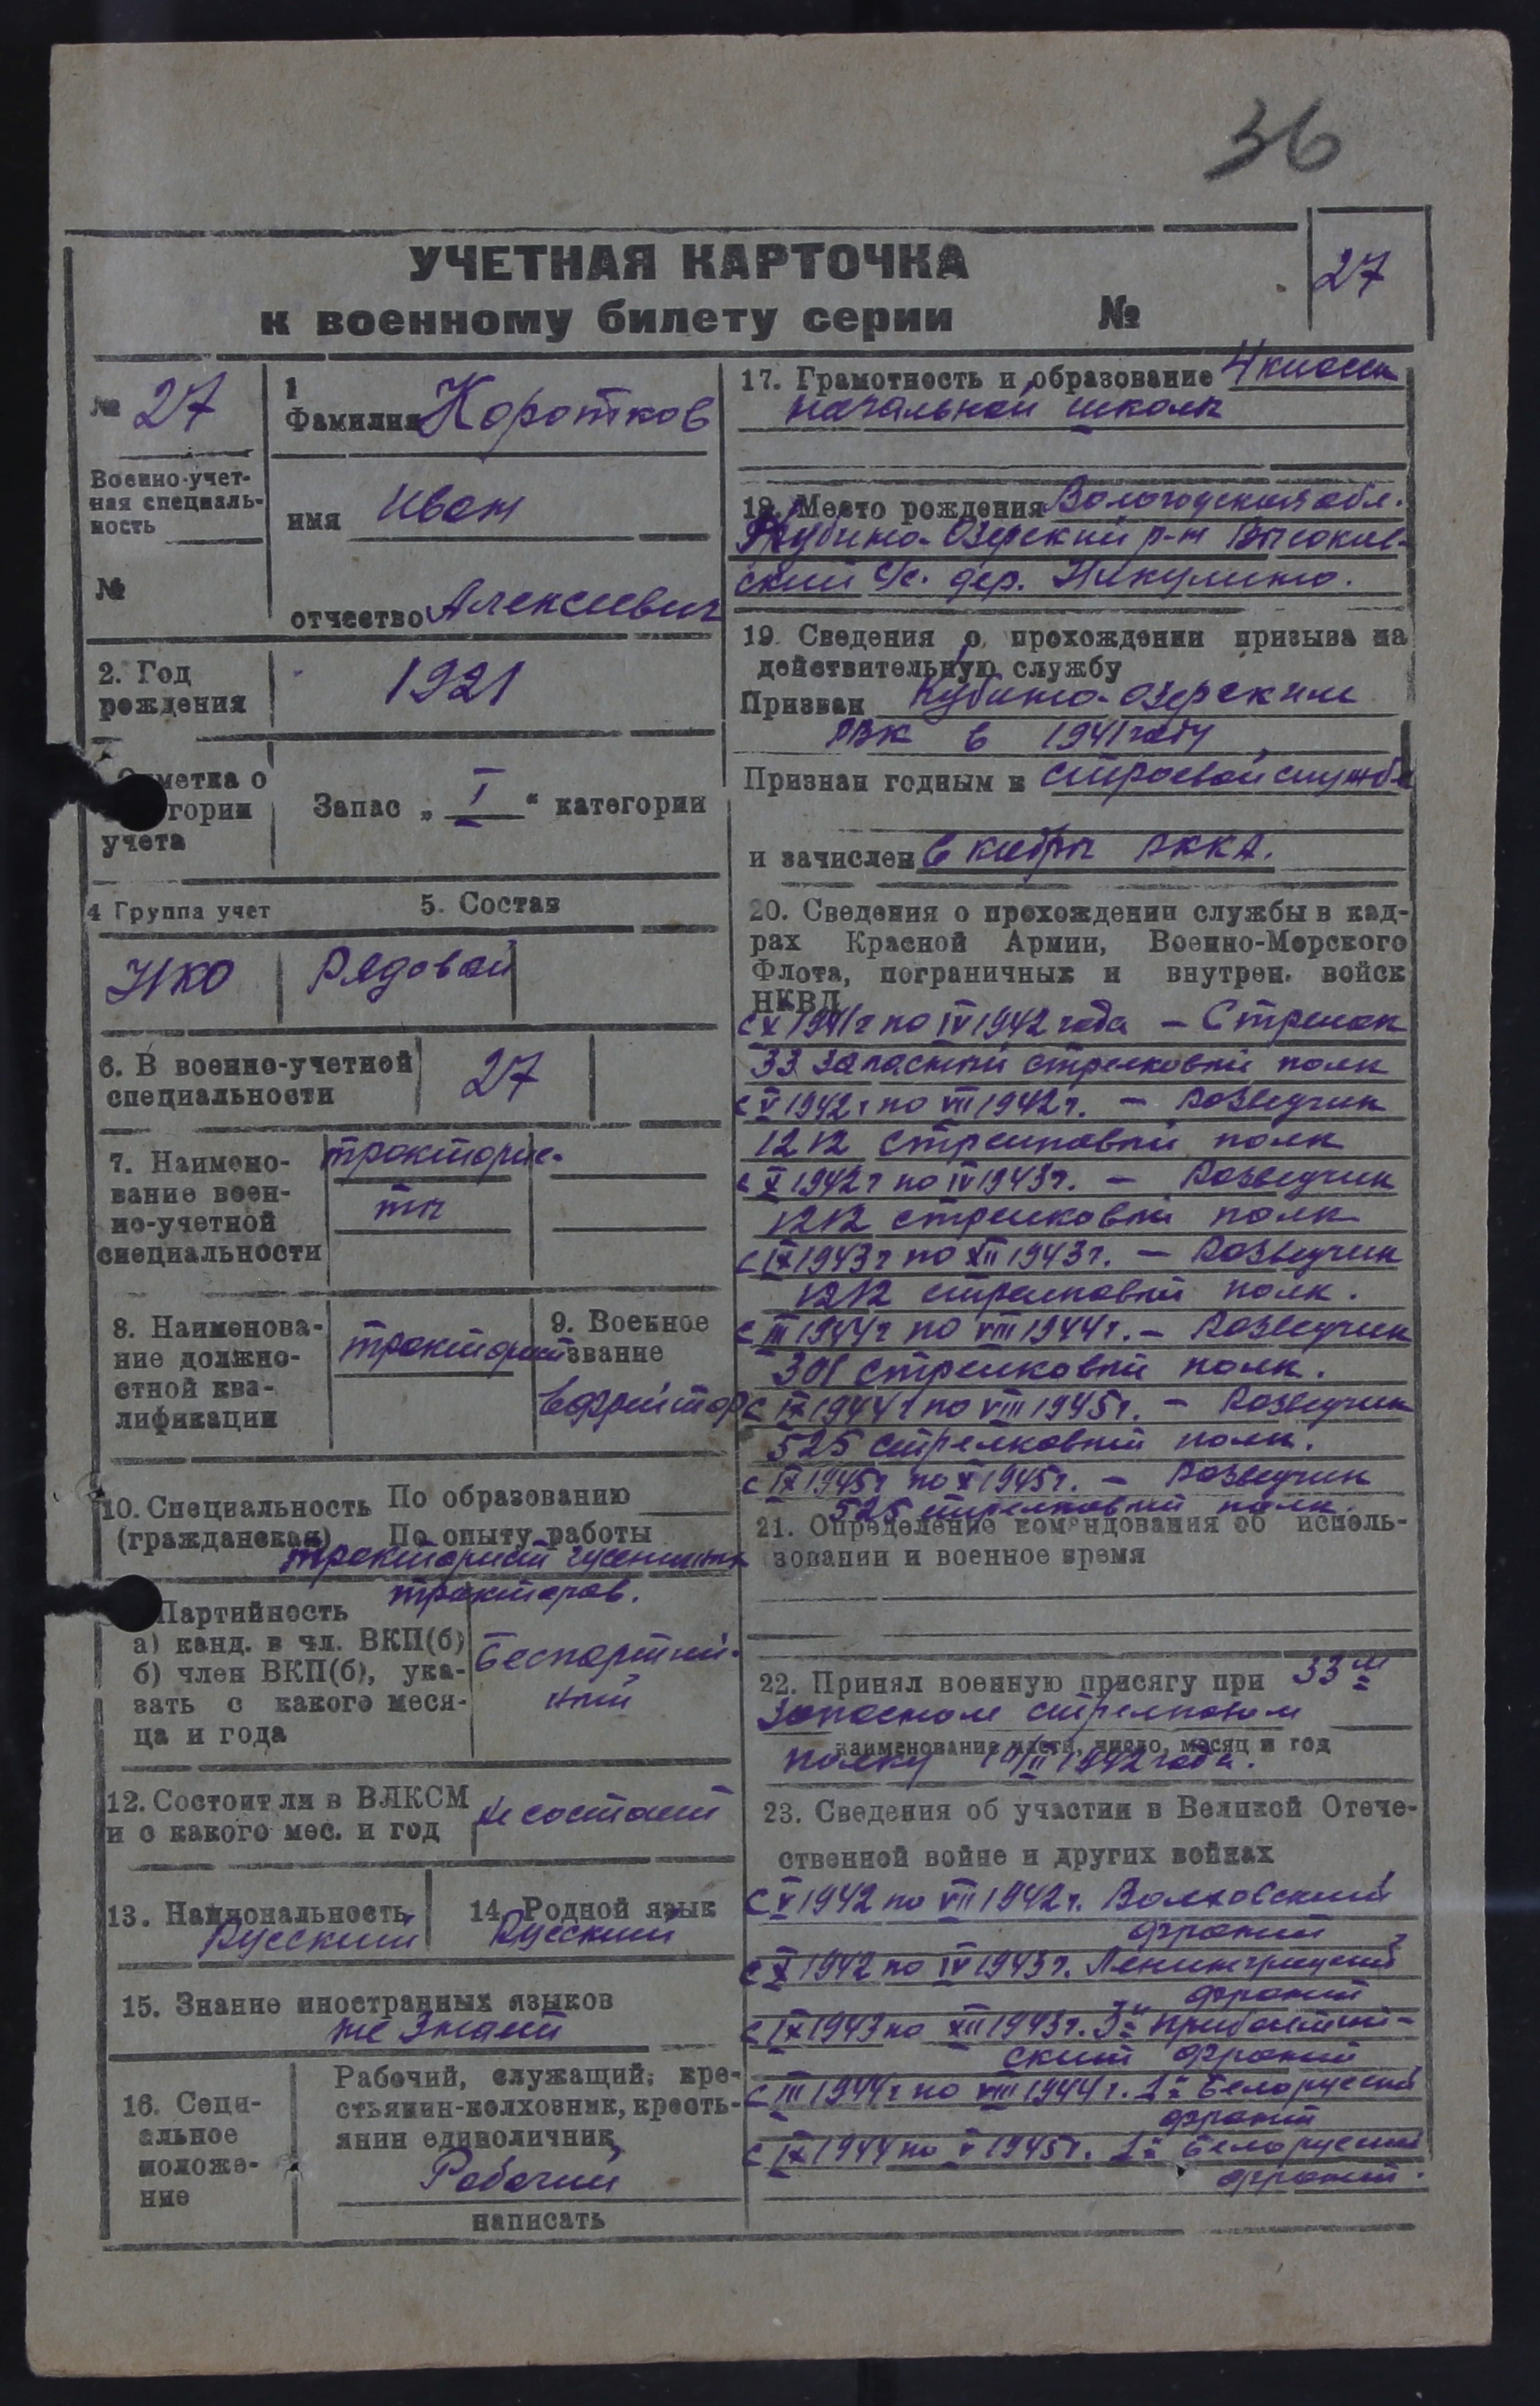 36
УЧЕТНАЯ КАРТОЧКА
к военному билету серии №
27
№ 27
Военно-учет-
ная специаль-
ность
№
1
Фамилия Коротков
имя Иван
отчество Алексеевич
2. Год
рождения
1921
метка о
гории
учета
Запас „ I “ категории
4 Группа учет
5. Состав
НКО
Рядовой
6. В военно-учетной
специальности
27
7. Наимено-
вание воен-
но-учетной
специальности
тракторис-
ты
8. Наименова-
ние должно-
стной ква-
лификации
тракторист
9. Военное
звание
Ефрейтор
10. Специальность По образованию
(гражданская) По опыту работы
тракторист гусеничных
тракторов.
Партийность
а) канд. в чл. ВКП(б)
б) член ВКП(б), ука-
зать с какого меся-
ца и года
Беспартий-
ный
12. Состоит ли в ВЛКСМ
и с какого мес. и год
не состоит
13. Национальность
Русский
14. Родной язык
Русский
15. Знание иностранных языков
не знает
16. Соци-
альное
положе-
ние
Рабочий, служащий, кре-
стьянин-колхозник, кресть-
янин единоличник
Рабочий
написать
17. Грамотность и образование 4 класса
начальной школы
18. Место рождения Вологодская обл.
Кубино-Озерский р-н Высоков-
ский с/с. дер. Никулино.
19. Сведения о прохождении призыва на
действительную службу
Призван Кубино-Озерским
РВК в 1941 году
Признан годным к строевой службе
и зачислен в кадры РККА.
20. Сведения о прохождении службы в кад-
рах Красной Армии, Военно-Морского
Флота, пограничных и внутрен. войск
НКВД
с X 1941 г по IV 1942 года – Стрелок
33 запасный стрелковый полк
с V 1942 г по VII 1942 г. – Разведчик
1212 стрелковый полк
с X 1942 г по IV 1943 г. – Разведчик
1212 стрелковый полк
с IX 1943 г по XII 1943 г. – Разведчик
1212 стрелковый полк.
с III 1944 г по VIII 1944 г. – Разведчик
301 стрелковый полк.
с IX 1944 г по VIII 1945 г. – Разведчик
525 стрелковый полк.
с IX 1945 г по X 1945 г. – Разведчик
525 стрелковый полк.
21. Определение командования об исполь-
зовании и военное время
22. Принял военную присягу при 33 м
запасном стрелковом
наименование части, число, месяц и год
полку 10/II 1942 года.
23. Сведения об участии в Великой Отече-
ственной войне и других войнах
с V 1942 по VII 1942 г. Волховский
фронт
с X 1942 по IV 1943 г. Ленинградский
фронт
с IX 1943 по XII 1943 г. 3й Прибалтий-
ский фронт
с III 1944 г по VIII 1944 г. 1й Белорусский
фронт
с IX 1944 по V 1945 г. 1й Белорусский
фронт.